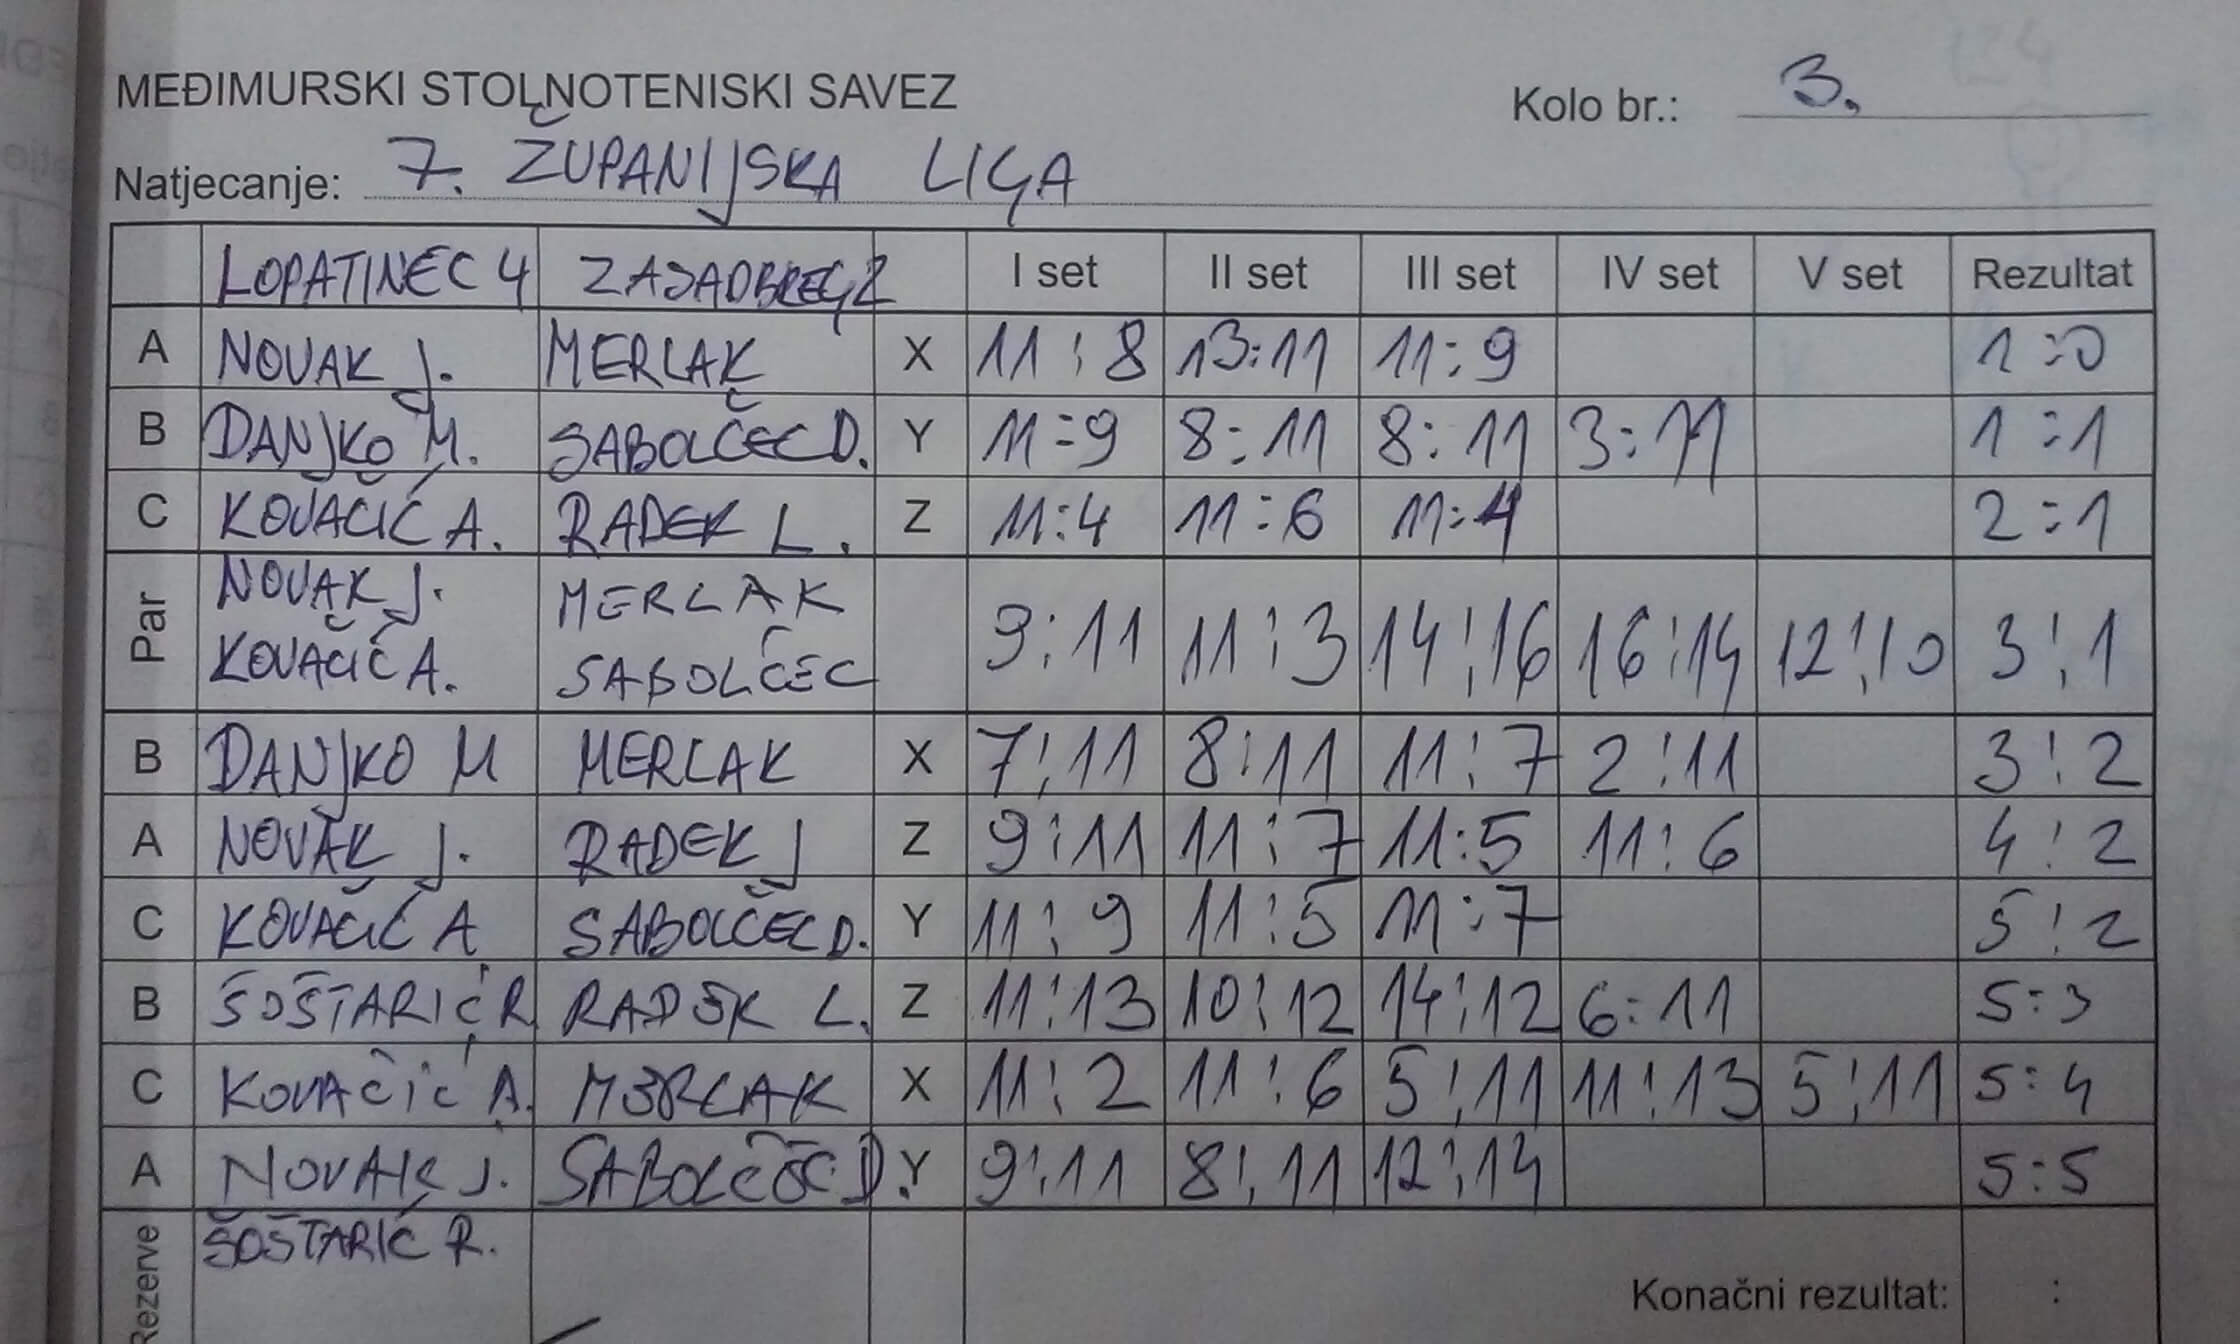 MEĐIMURSKI STOLNOTENISKI SAVEZ Kolo br.: 3.
Natjecanje: 7. ŽUPANIJSKA LIGA
LOPATINEC 4 ZASADBREG 2 I set II set III set IV set V set Rezultat
A NOVAK J. MERLAK X 11:8 13:11 11:9 1:0
B DANJKO M. SABOLČEC D. Y 11:9 8:11 8:11 3:11 1:1
C KOVAČIĆ A. RADEK L. Z 11:4 11:6 11:4 2:1
Par NOVAK J. MERLAK 9:11 11:3 14:16 16:14 12:10 3:1
KOVAČIĆ A. SABOLČEC
B DANJKO M MERLAK X 7:11 8:11 11:7 2:11 3:2
A NOVAK J. RADEK J Z 9:11 11:7 11:5 11:6 4:2
C KOVAČIĆ A SABOLČEC D. Y 11:9 11:5 11:7 5:2
B ŠOŠTARIĆ R RADEK L. Z 11:13 10:12 14:12 6:11 5:3
C KOVAČIĆ A. MERLAK X 11:2 11:6 5:11 11:13 5:11 5:4
A NOVAK J. SABOLČEC D. Y 9:11 8:11 12:14 5:5
Rezerve ŠOŠTARIĆ R.
Konačni rezultat: :